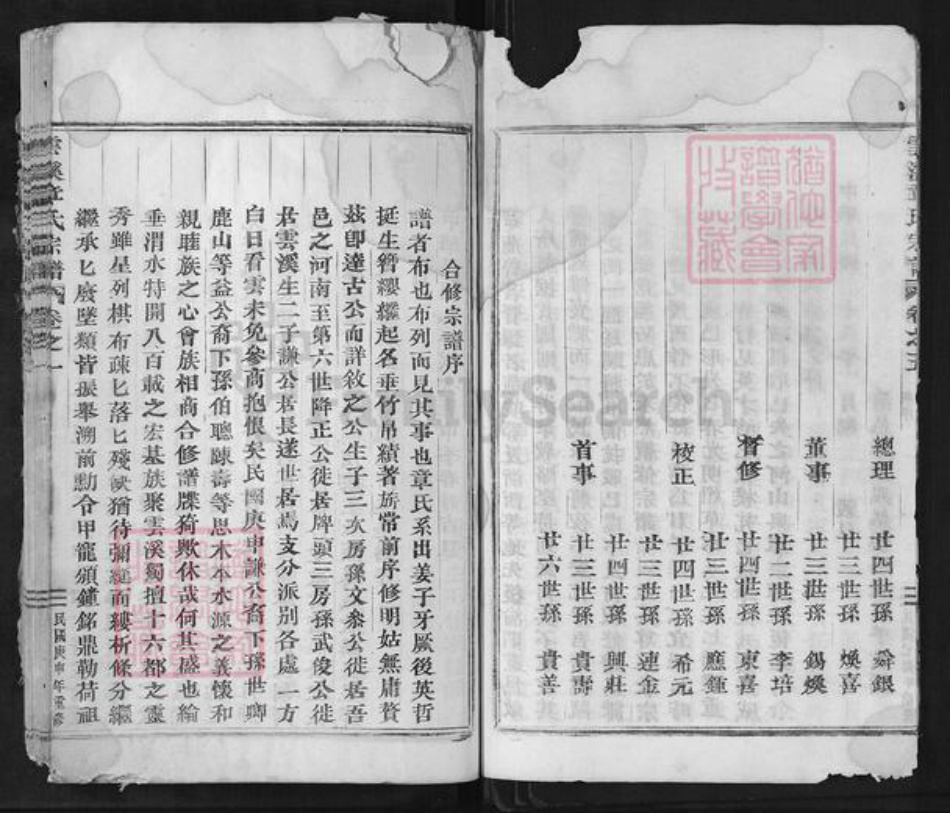 總理 廿四世孫 舜銀
廿三世孫 煥喜
董事 廿三世孫 錫煥
廿二世孫 李培
督修 廿四世孫 東喜
廿三世孫 應鍾
校正 廿四世孫 希元
廿三世孫 連金
廿四世孫 興莊
首事 廿三世孫 貴壽
廿六世孫 貴善
合修宗譜序
譜者布也布列而見其事也章氏系出姜子牙厥後英哲
挺生簪纓繼起名垂竹帛績著旂常前序修明姑無庸贅
茲卽達古公而詳敘之公生子三次房孫文叅公徙居吾
邑之河南至第六世降正公徒居牌頭三房孫武俊公徙
居雲溪生二子謙公居長遂世居焉支分派別各處一方
白日看雲未免參商抱恨矣民國庚申謙公裔下孫世卿
鹿山等益公裔下孫伯聰陳壽等思木本水源之義懷和
親睦族之心會族相商合修譜牒猗歟休哉何其盛也綸
垂渭水特開八百載之宏基族聚雲溪獨擅十六都之靈
秀雖星列棋布疎匕落匕殘缺猶待彌縫而縷析條分繼
繼承匕廢墜類皆振舉溯前勳令甲龍頒鍾銘鼎勒荷祖
雲溪章氏宗譜 卷之一
民國庚申年重修
猶他家譜學會收藏